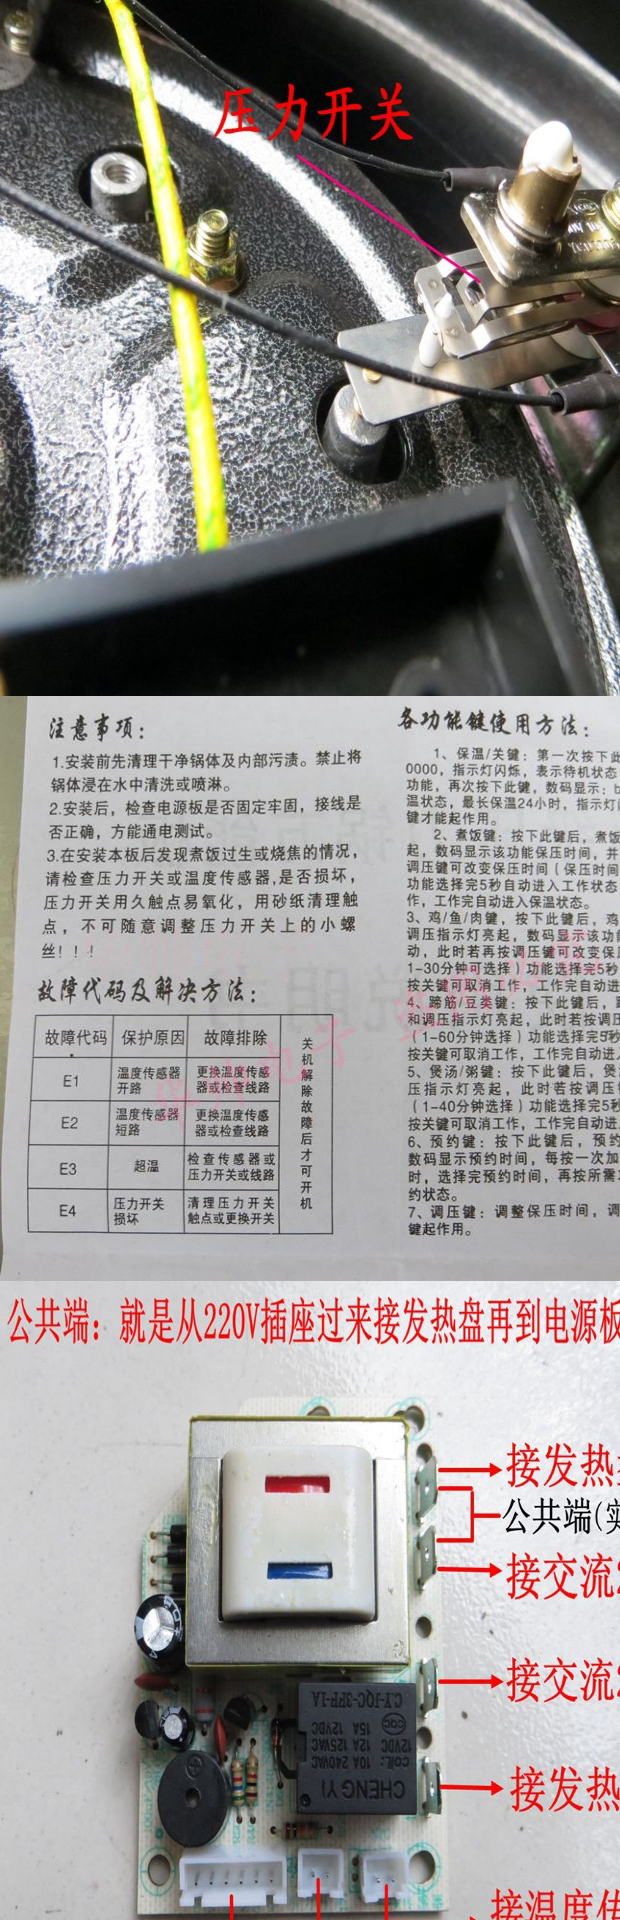 压力开关
注意事项：
1.安装前先清理干净锅体及内部污渍。禁止将
锅体浸在水中清洗或喷淋。
2.安装后，检查电源板是否固定牢固，接线是
否正确，方能通电测试。
3.在安装本板后发现煮饭过生或烧焦的情况，
请检查压力开关或温度传感器,是否损坏，
压力开关用久触点易氧化，用砂纸清理触
点，不可随意调整压力开关上的小螺
丝！！！
故障代码及解决方法：
故障代码 保护原因 故障排除
E1 温度传感器开路 更换温度传感器或检查线路
E2 温度传感器短路 更换温度传感器或检查线路
E3 超温 检查传感器或压力开关或线路
E4 压力开关损坏 清理压力开关触点或更换开关
关机解除故障后才可开机
各功能键使用方法：
1、保温/关键：第一次按下此
0000，指示灯闪烁，表示待机状态
功能，再次按下此键，数码显示：b
温状态，最长保温24小时，指示灯
键才能起作用。
2、煮饭键：按下此键后，煮饭
起，数码显示该功能保压时间，并
调压键可改变保压时间（保压时间
功能选择完5秒自动进入工作状态
作，工作完自动进入保温状态。
3、鸡/鱼/肉键，按下此键后，鸡
动，此时若再按调压键可改变保压
1-30分钟可选择）功能选择完5秒
按关键可取消工作，工作完自动进入
4、蹄筋/豆类键：按下此键后，蹄
和调压指示灯亮起，此时若按调压
（1-60分钟选择）功能选择完5秒
按关键可取消工作，工作完自动进入
5、煲汤/粥键：按下此键后，煲
压指示灯亮起，此时若按调压键
（1-40分钟选择）功能选择完5秒
按关键可取消工作，工作完自动进
6、预约键：按下此键后，预约
数码显示预约时间，每按一次加
时，选择完预约时间，再按所需
约状态。
7、调压键：调整保压时间，调
键起作用。
公共端：就是从220V插座过来接发热盘再到电源板
接发热
公共端(
接交流2
接交流2
接发热
接温度传
CHENG YI
COIL:
12VDC
10A 240VAC
12A 125VAC
15A 12VDC
C.Y-JQC-3FF-1A